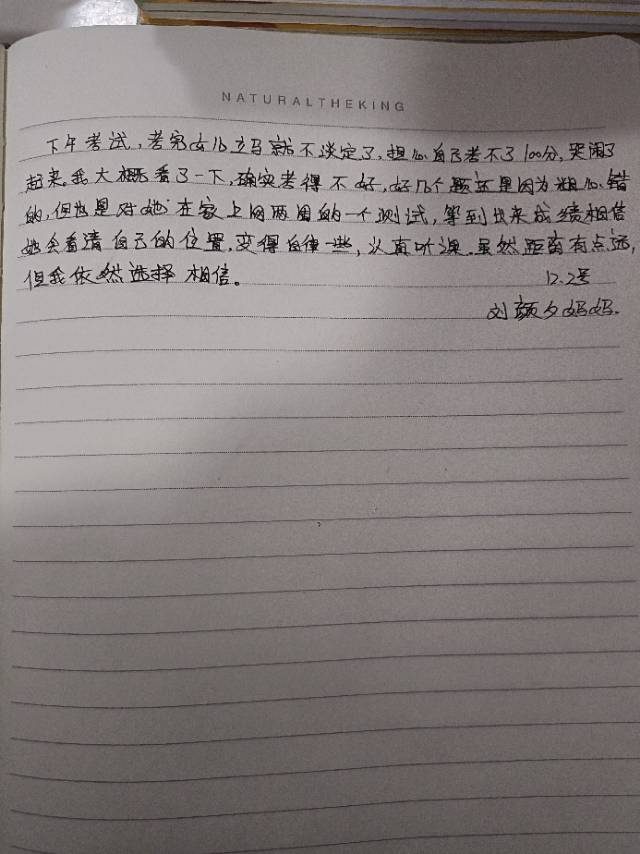 NATURALTHEKING
下午考试，考完女儿立马就不淡定了，担心自己考不了100分，哭闹了
起来。我大概看了一下，确实考得不好，好几个题还是因为粗心错
的，但也是对她在家上网两周的一个测试，等到出来成绩相信
她会看清自己的位置，变得自律一些，认真听课。虽然距离有点远，
但我依然选择相信。
12.2号
刘颜夕妈妈.